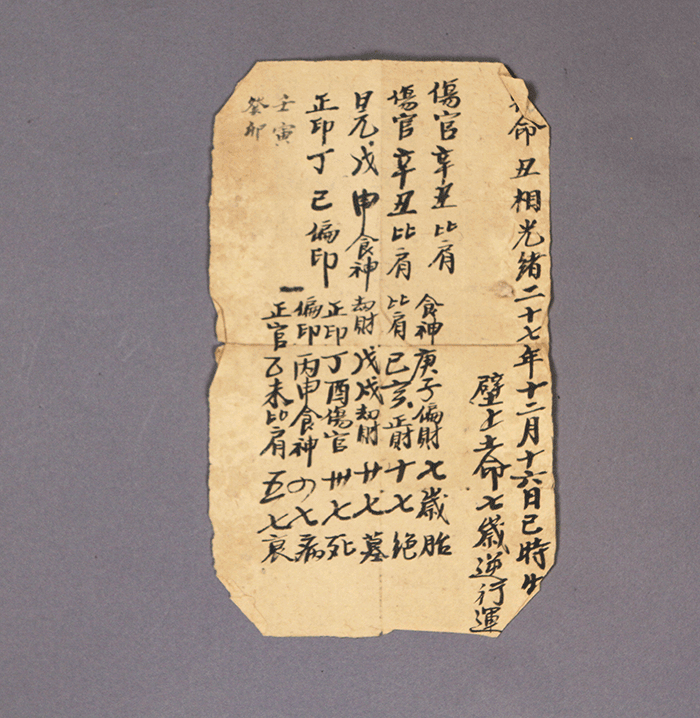 命丑相光緒二十七年十二月十六日巳時生
壁上土命七歲逆行運
傷官辛丑比肩
傷官辛丑比肩
日元戊申食神
正印丁巳偏印
壬寅
癸卯
食神庚子偏財七歲胎
比肩己亥正財十七絕
刼財戊戌刼財廿七墓
正印丁酉傷官卅七死
偏印丙申食神四七病
正官乙未比肩五七衰